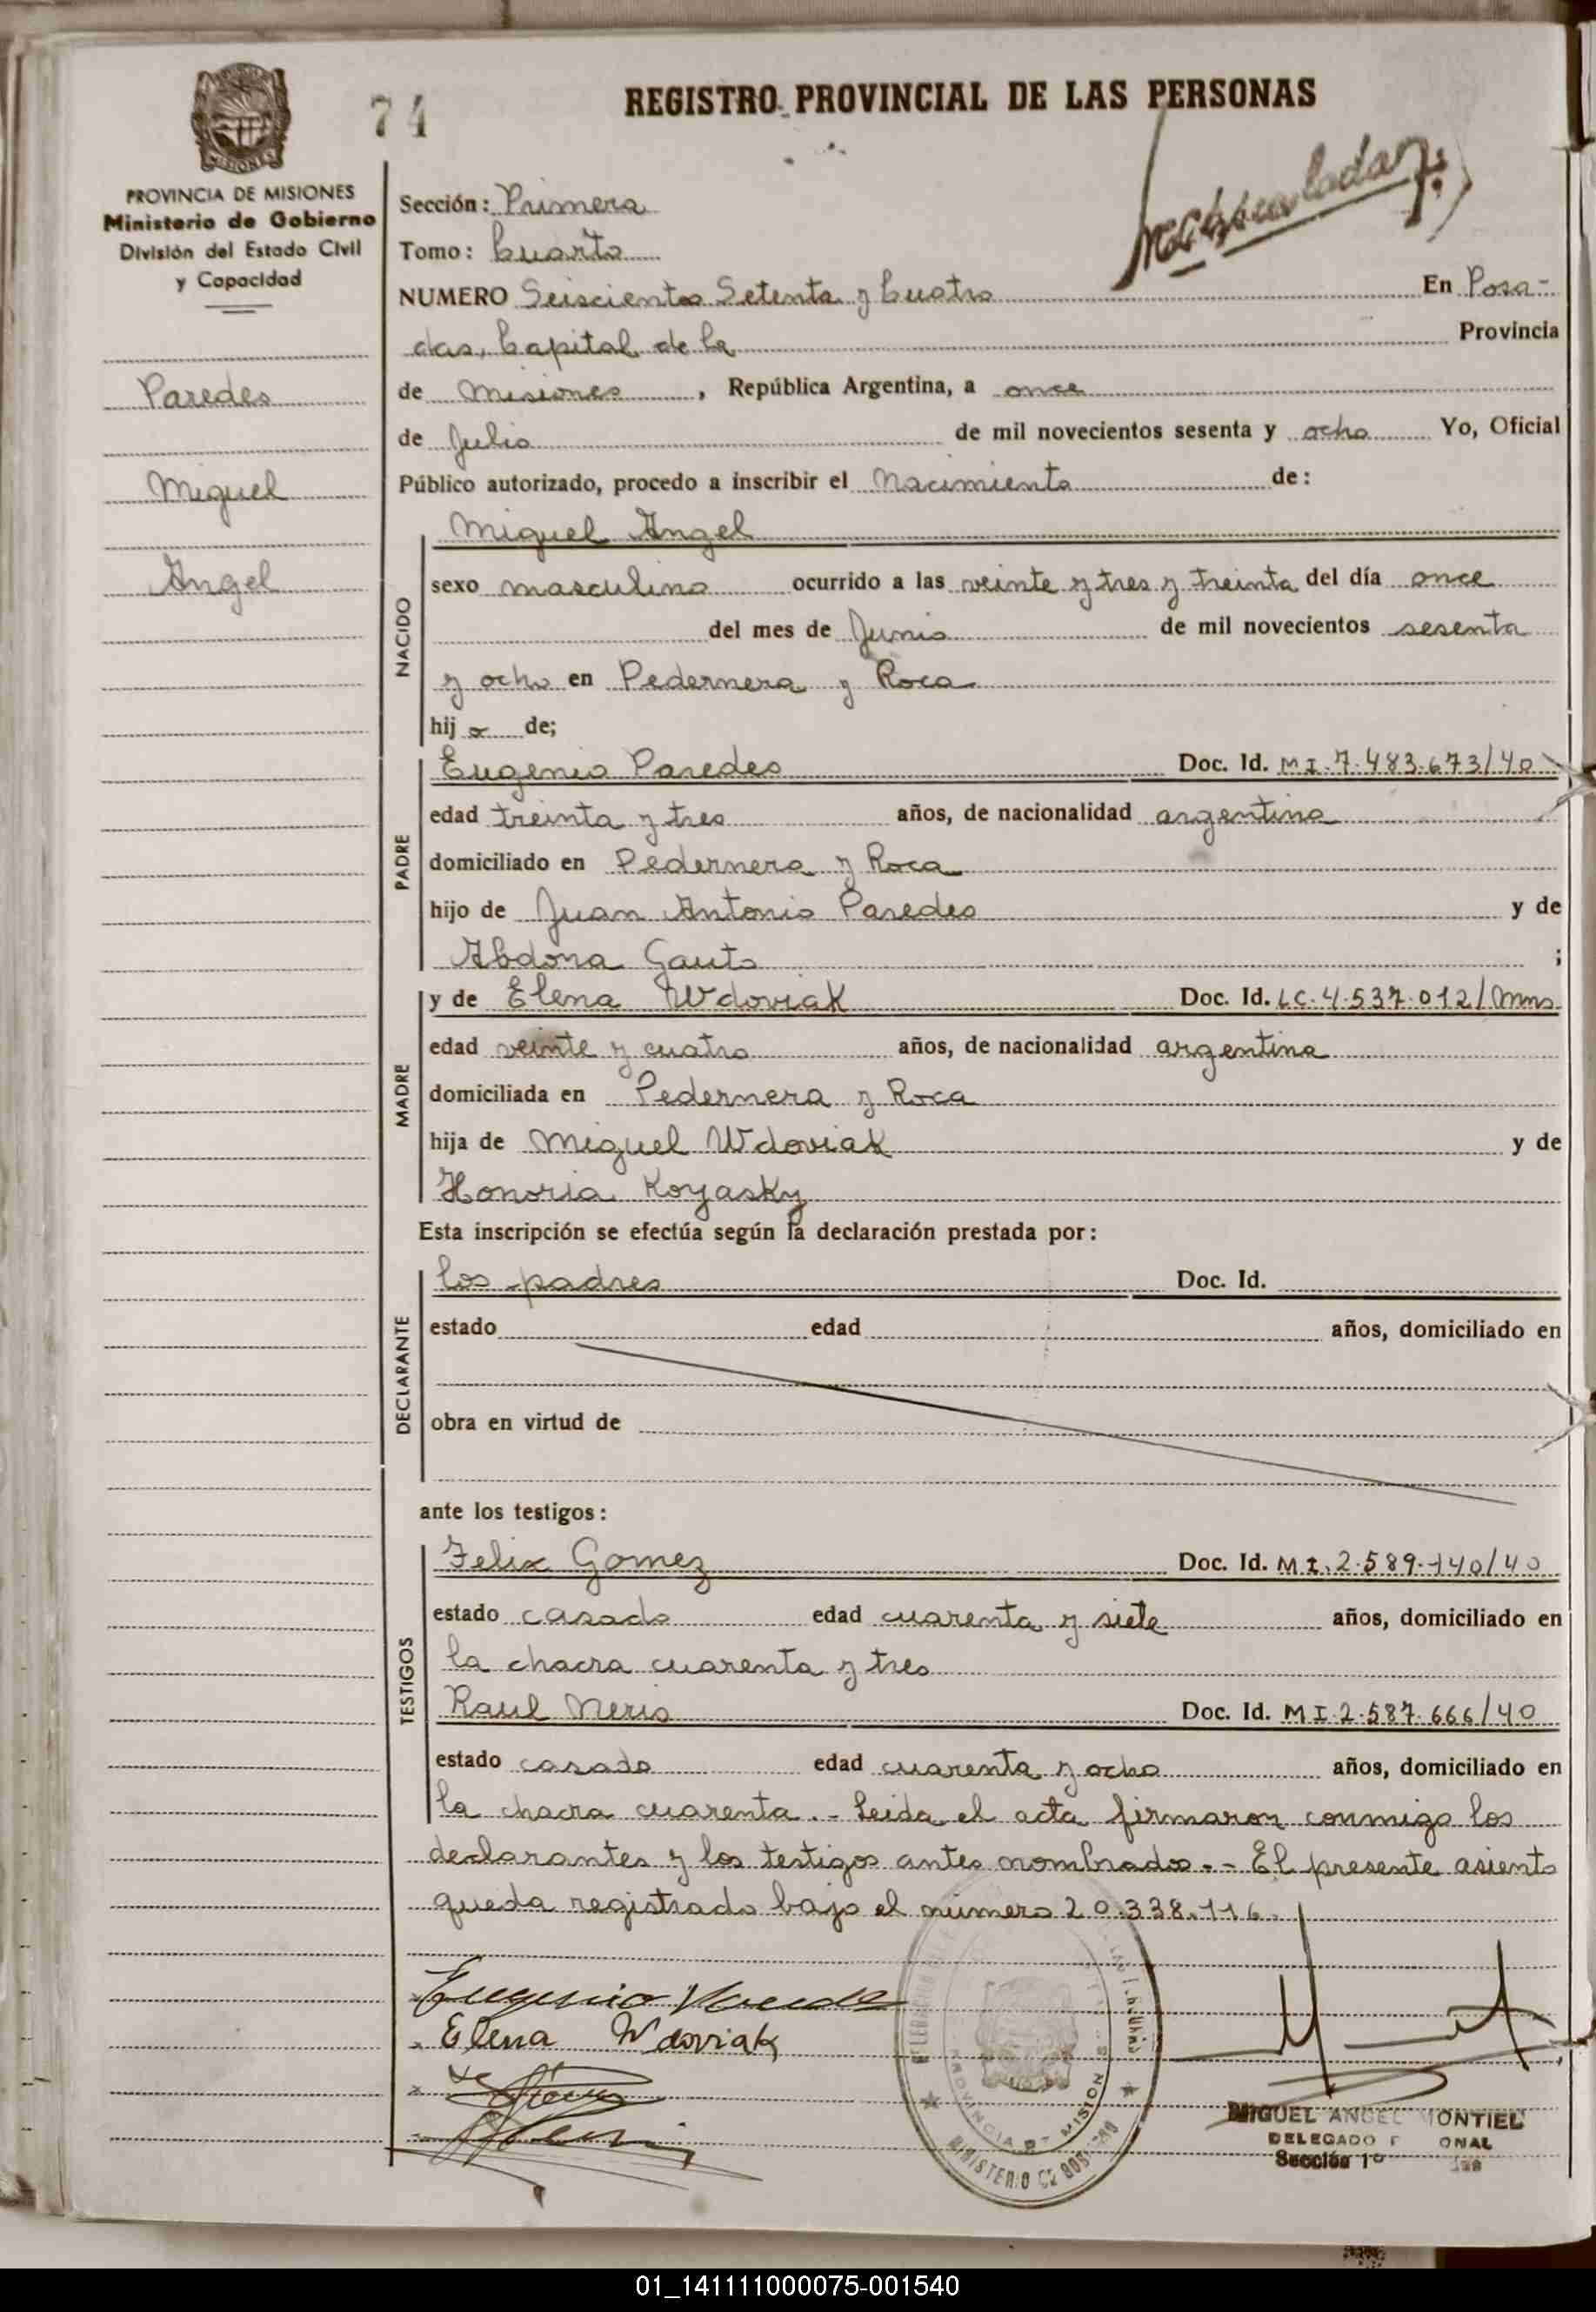 74
REGISTRO PROVINCIAL DE LAS PERSONAS
MISIONES
PROVINCIA DE MISIONES
Ministerio de Gobierno
División del Estado Civil
y Capacidad
Paredes
Miguel
Angel
Sección: Primera
Tomo: Cuarto
NUMERO Seiscientos Setenta y Cuatro En Posa-
das, Capital de la Provincia
de Misiones, República Argentina, a once
de Julio de mil novecientos sesenta y ocho Yo, Oficial
Público autorizado, procedo a inscribir el Nacimiento de:
NACIDO
Miguel Angel
sexo masculino ocurrido a las veinte y tres y treinta del día once
del mes de Junio de mil novecientos sesenta
y ocho en Pedernera y Roca
hijo de;
PADRE
Eugenio Paredes Doc. Id. MI.7.483.673/40
edad treinta y tres años, de nacionalidad argentina
domiciliado en Pedernera y Roca
hijo de Juan Antonio Paredes y de
Abdona Gauto ;
MADRE
y de Elena Wdoviak Doc. Id. LC.4.537.012/Mns
edad veinte y cuatro años, de nacionalidad argentina
domiciliada en Pedernera y Roca
hija de Miguel Wdoviak y de
Honoria Koyasky
Esta inscripción se efectúa según la declaración prestada por:
DECLARANTE
los padres Doc. Id.
estado edad años, domiciliado en
obra en virtud de
ante los testigos:
TESTIGOS
Felix Gomez Doc. Id. MI.2.589.140/40
estado casado edad cuarenta y siete años, domiciliado en
la chacra cuarenta y tres
Raul Neris Doc. Id. MI.2.587.666/40
estado casado edad cuarenta y ocho años, domiciliado en
la chacra cuarenta.- Leida el acta firmaron conmigo los
declarantes y los testigos antes nombrados.- El presente asiento
queda registrado bajo el número 20.338.116.
Eugenio Paredes
Elena Wdoviak
PROVINCIA DE MISIONES
MINISTERIO DE
MIGUEL ANGEL MONTIEL
DELEGADO
Sección 1º
01_141111000075-001540